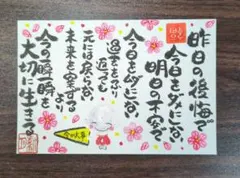 昨日の後悔で
今日をダメにない
明日の不安で
今日をムダにない
過去をふり
返っても
元には戻らない
未来を案ずる
より
今の瞬間を
大切に生きる